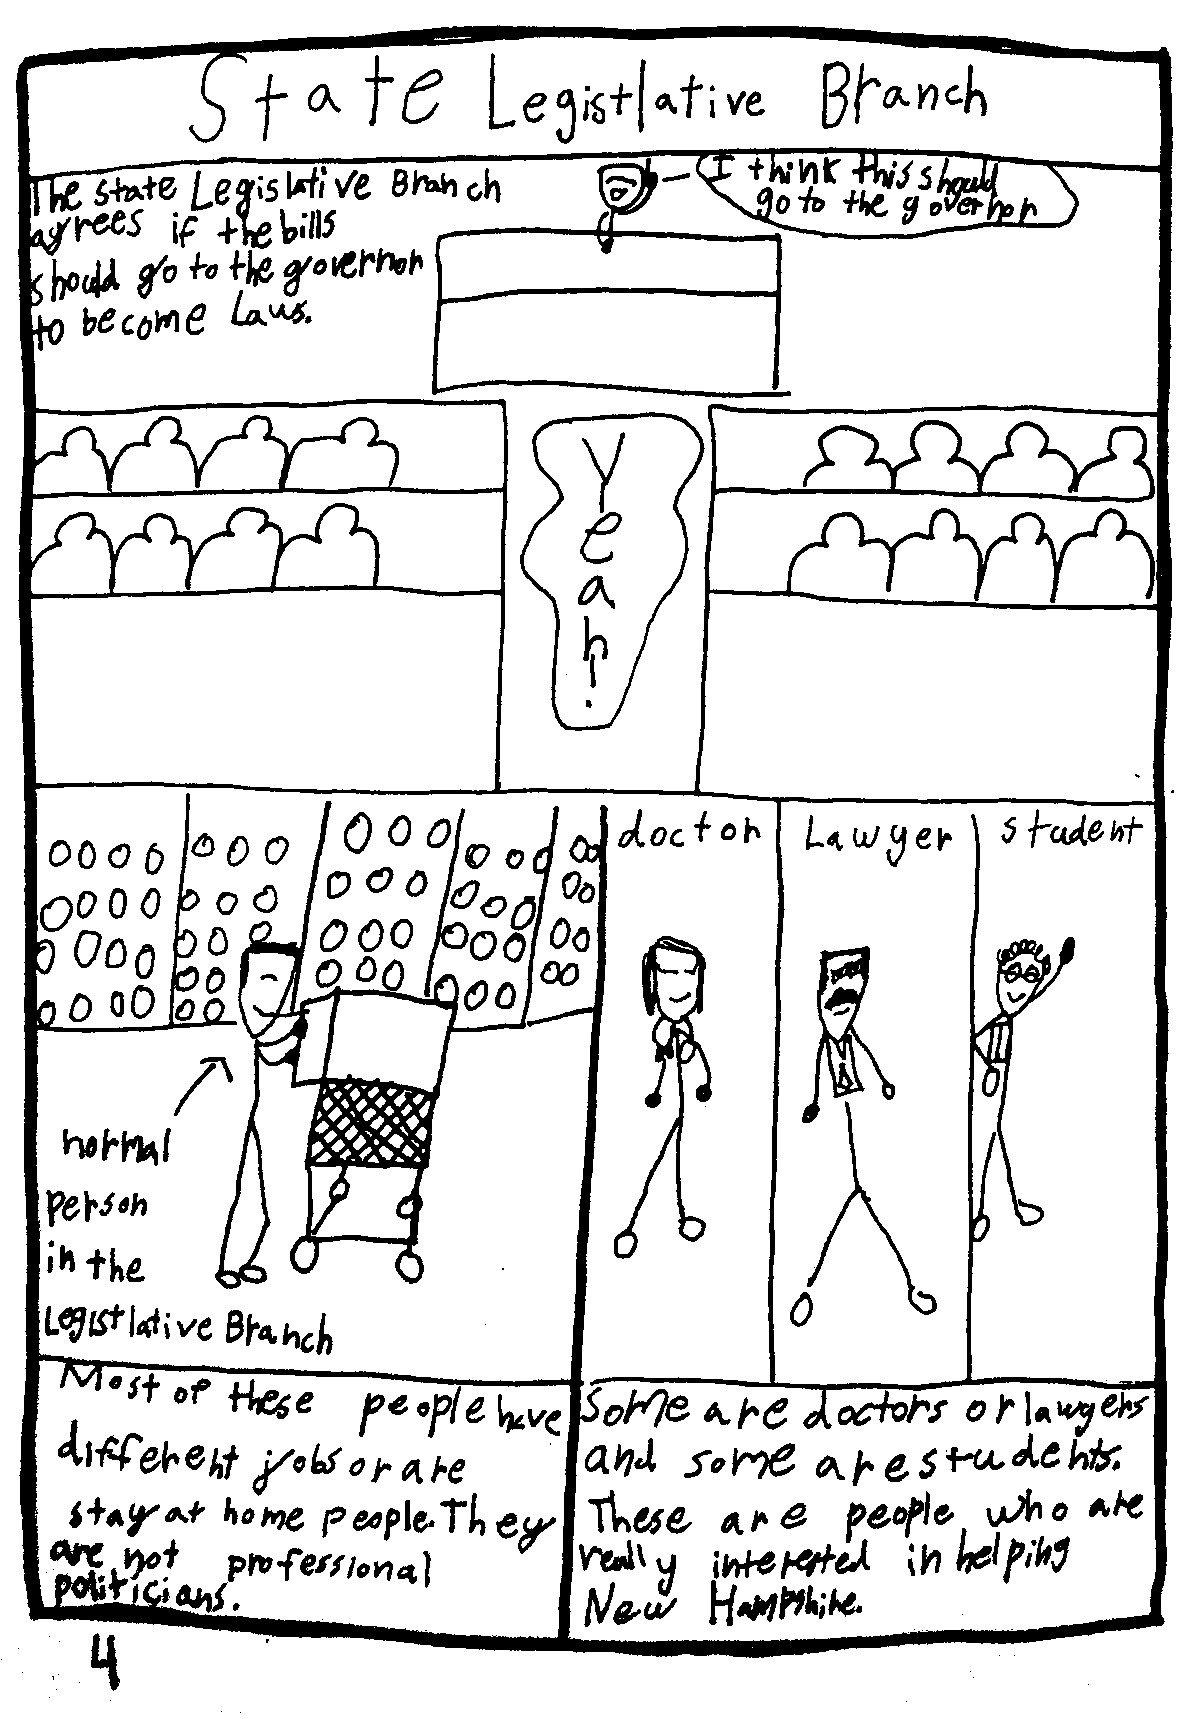 State Legistlative Branch
The State Legislative Branch
agrees if the bills
should go to the governor
to become Laws.
I think this should
go to the governor
Yeah!
doctor
Lawyer
student
normal
person
in the
Legistlative Branch
Most of these people have
different jobs or are
stay at home people. They
are not professional
politicians.
Some are doctors or lawyers
and some are students.
These are people who are
really interested in helping
New Hampshire.
4